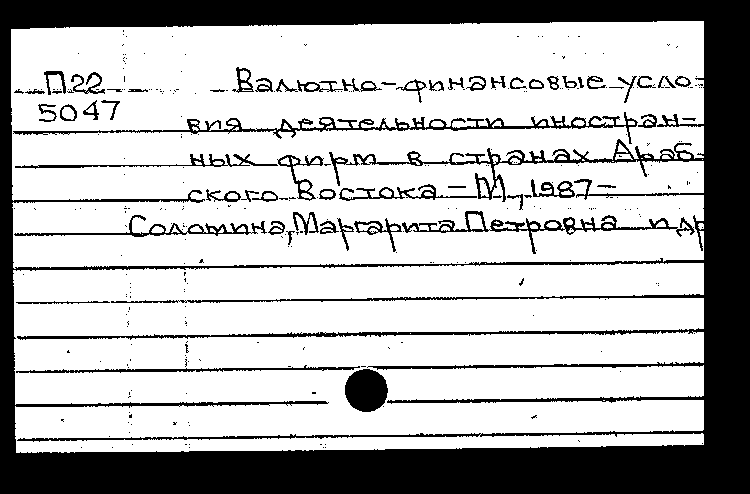 П22 Валютно-финансовые усло=
5047
вия деятельности иностран=
ных фирм в странах Араб=
ского Востока – М, 1987–
Соломина, Маргарита Петровна и др